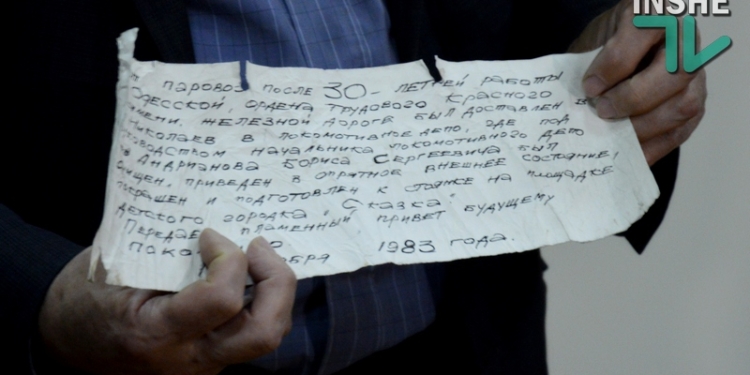 INSHE
TV
паровоз после 30-летней работы
Одесской, ордена Трудового Красного
Знамени, железной дороге был доставлен в
Николаев в локомотивное депо, где под
руководством начальника локомотивного депо
Андрианова Бориса Сергеевича был
очищен, приведен в опрятное внешнее состояние,
покрашен и подготовлен к стоянке на площадке
детского городка "Сказка".
Передаем пламенный привет будущему
1983 года.